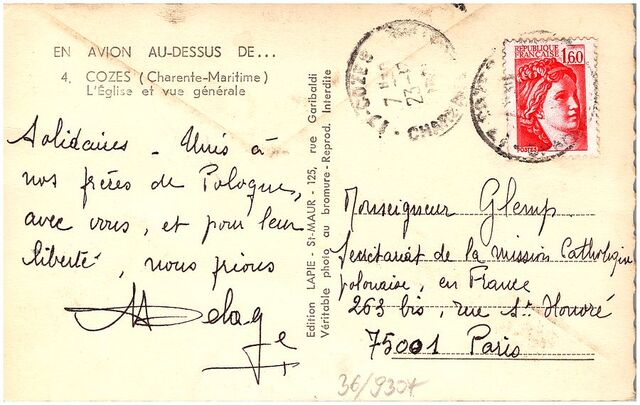 EN AVION AU-DESSUS DE...
4. COZES (Charente-Maritime)
L'Église et vue générale
Solidaires - Unis à
nos frères de Pologne,
avec vous, et pour leur
liberté, nous prions
Delage
Edition LAPIE - St-MAUR - 125, rue Garibaldi
Véritable photo au bromure - Reprod. Interdite
17 COZES
7H
23-12
CHARENTE
RÉPUBLIQUE
FRANÇAISE
1,60
POSTES
Monseigneur Glemp
Secrétariat de la mission Catholique
polonaise, en France
263 bis, rue St Honoré
75001 Paris
36/9304